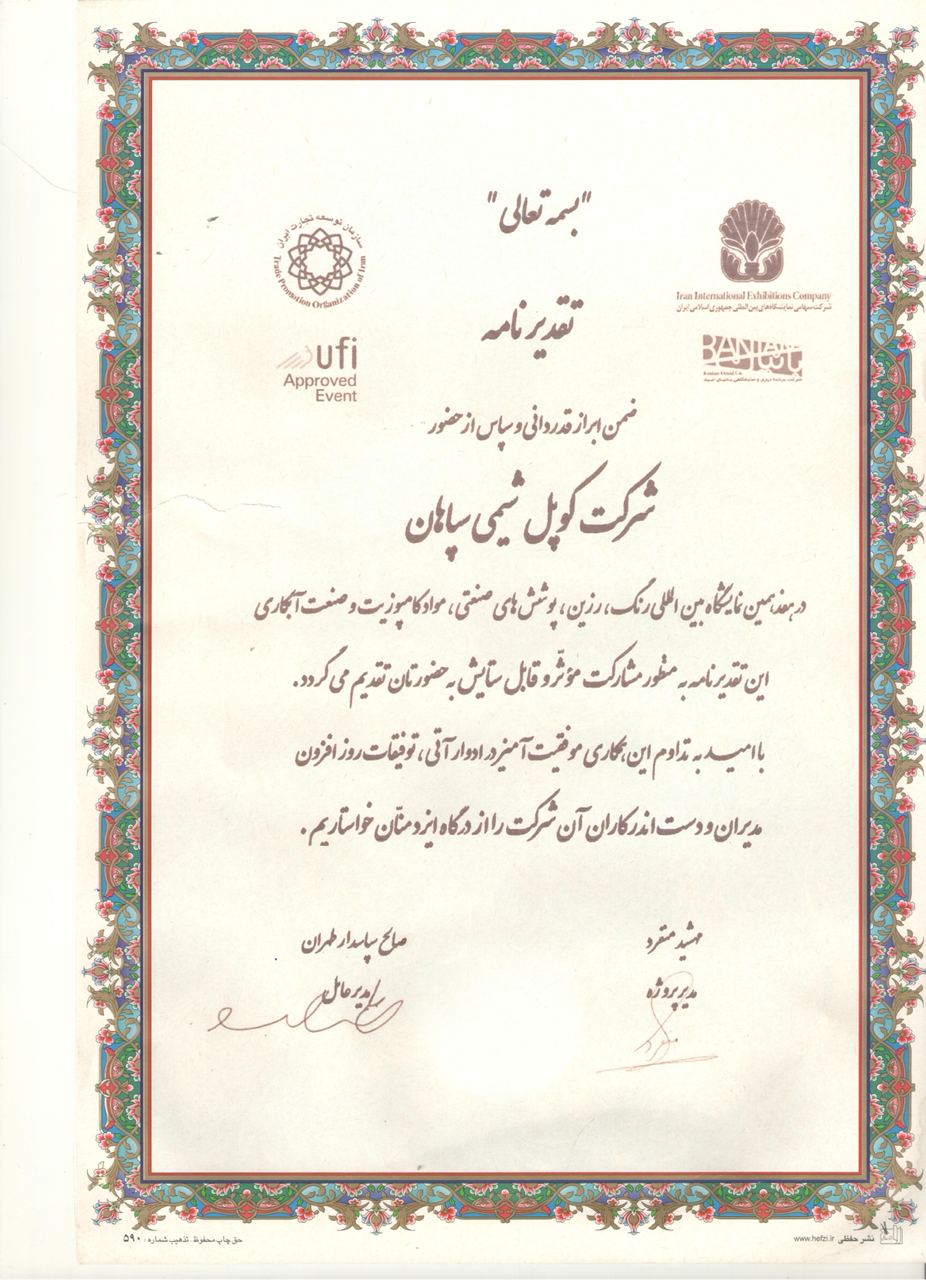 "بسمه تعالی"
سازمان توسعه تجارت ایران
Trade Promotion Organization of Iran
Iran International Exhibitions Company
شرکت سهامی نمایشگاه‌های بین‌المللی جمهوری اسلامی ایران
تقدیر نامه
ufi
Approved
Event
BANIAN
بانیان
Banian Omid Co
شرکت برنامه ریزی و نمایشگاهی بانیان امید
ضمن ابراز قدردانی و سپاس از حضور
شرکت کوپل شیمی سپاهان
در هفدهمین نمایشگاه بین المللی رنگ، رزین، پوشش های صنعتی، مواد کامپوزیت و صنعت آبکاری
این تقدیر نامه به منظور مشارکت مؤثّر و قابل ستایش به حضورتان تقدیم می گردد.
با امید به تداوم این همکاری موفقیت آمیز در ادوار آتی، توفیقات روز افزون
مدیران و دست اندرکاران آن شرکت را از درگاه ایزد منّان خواستاریم.
مهشید منفرد
صالح پاسدار طهران
مدیر پروژه
مدیر عامل
نشر حفظی www.hefzi.ir
حق چاپ محفوظ. تذهیب شماره: ۵۹۰